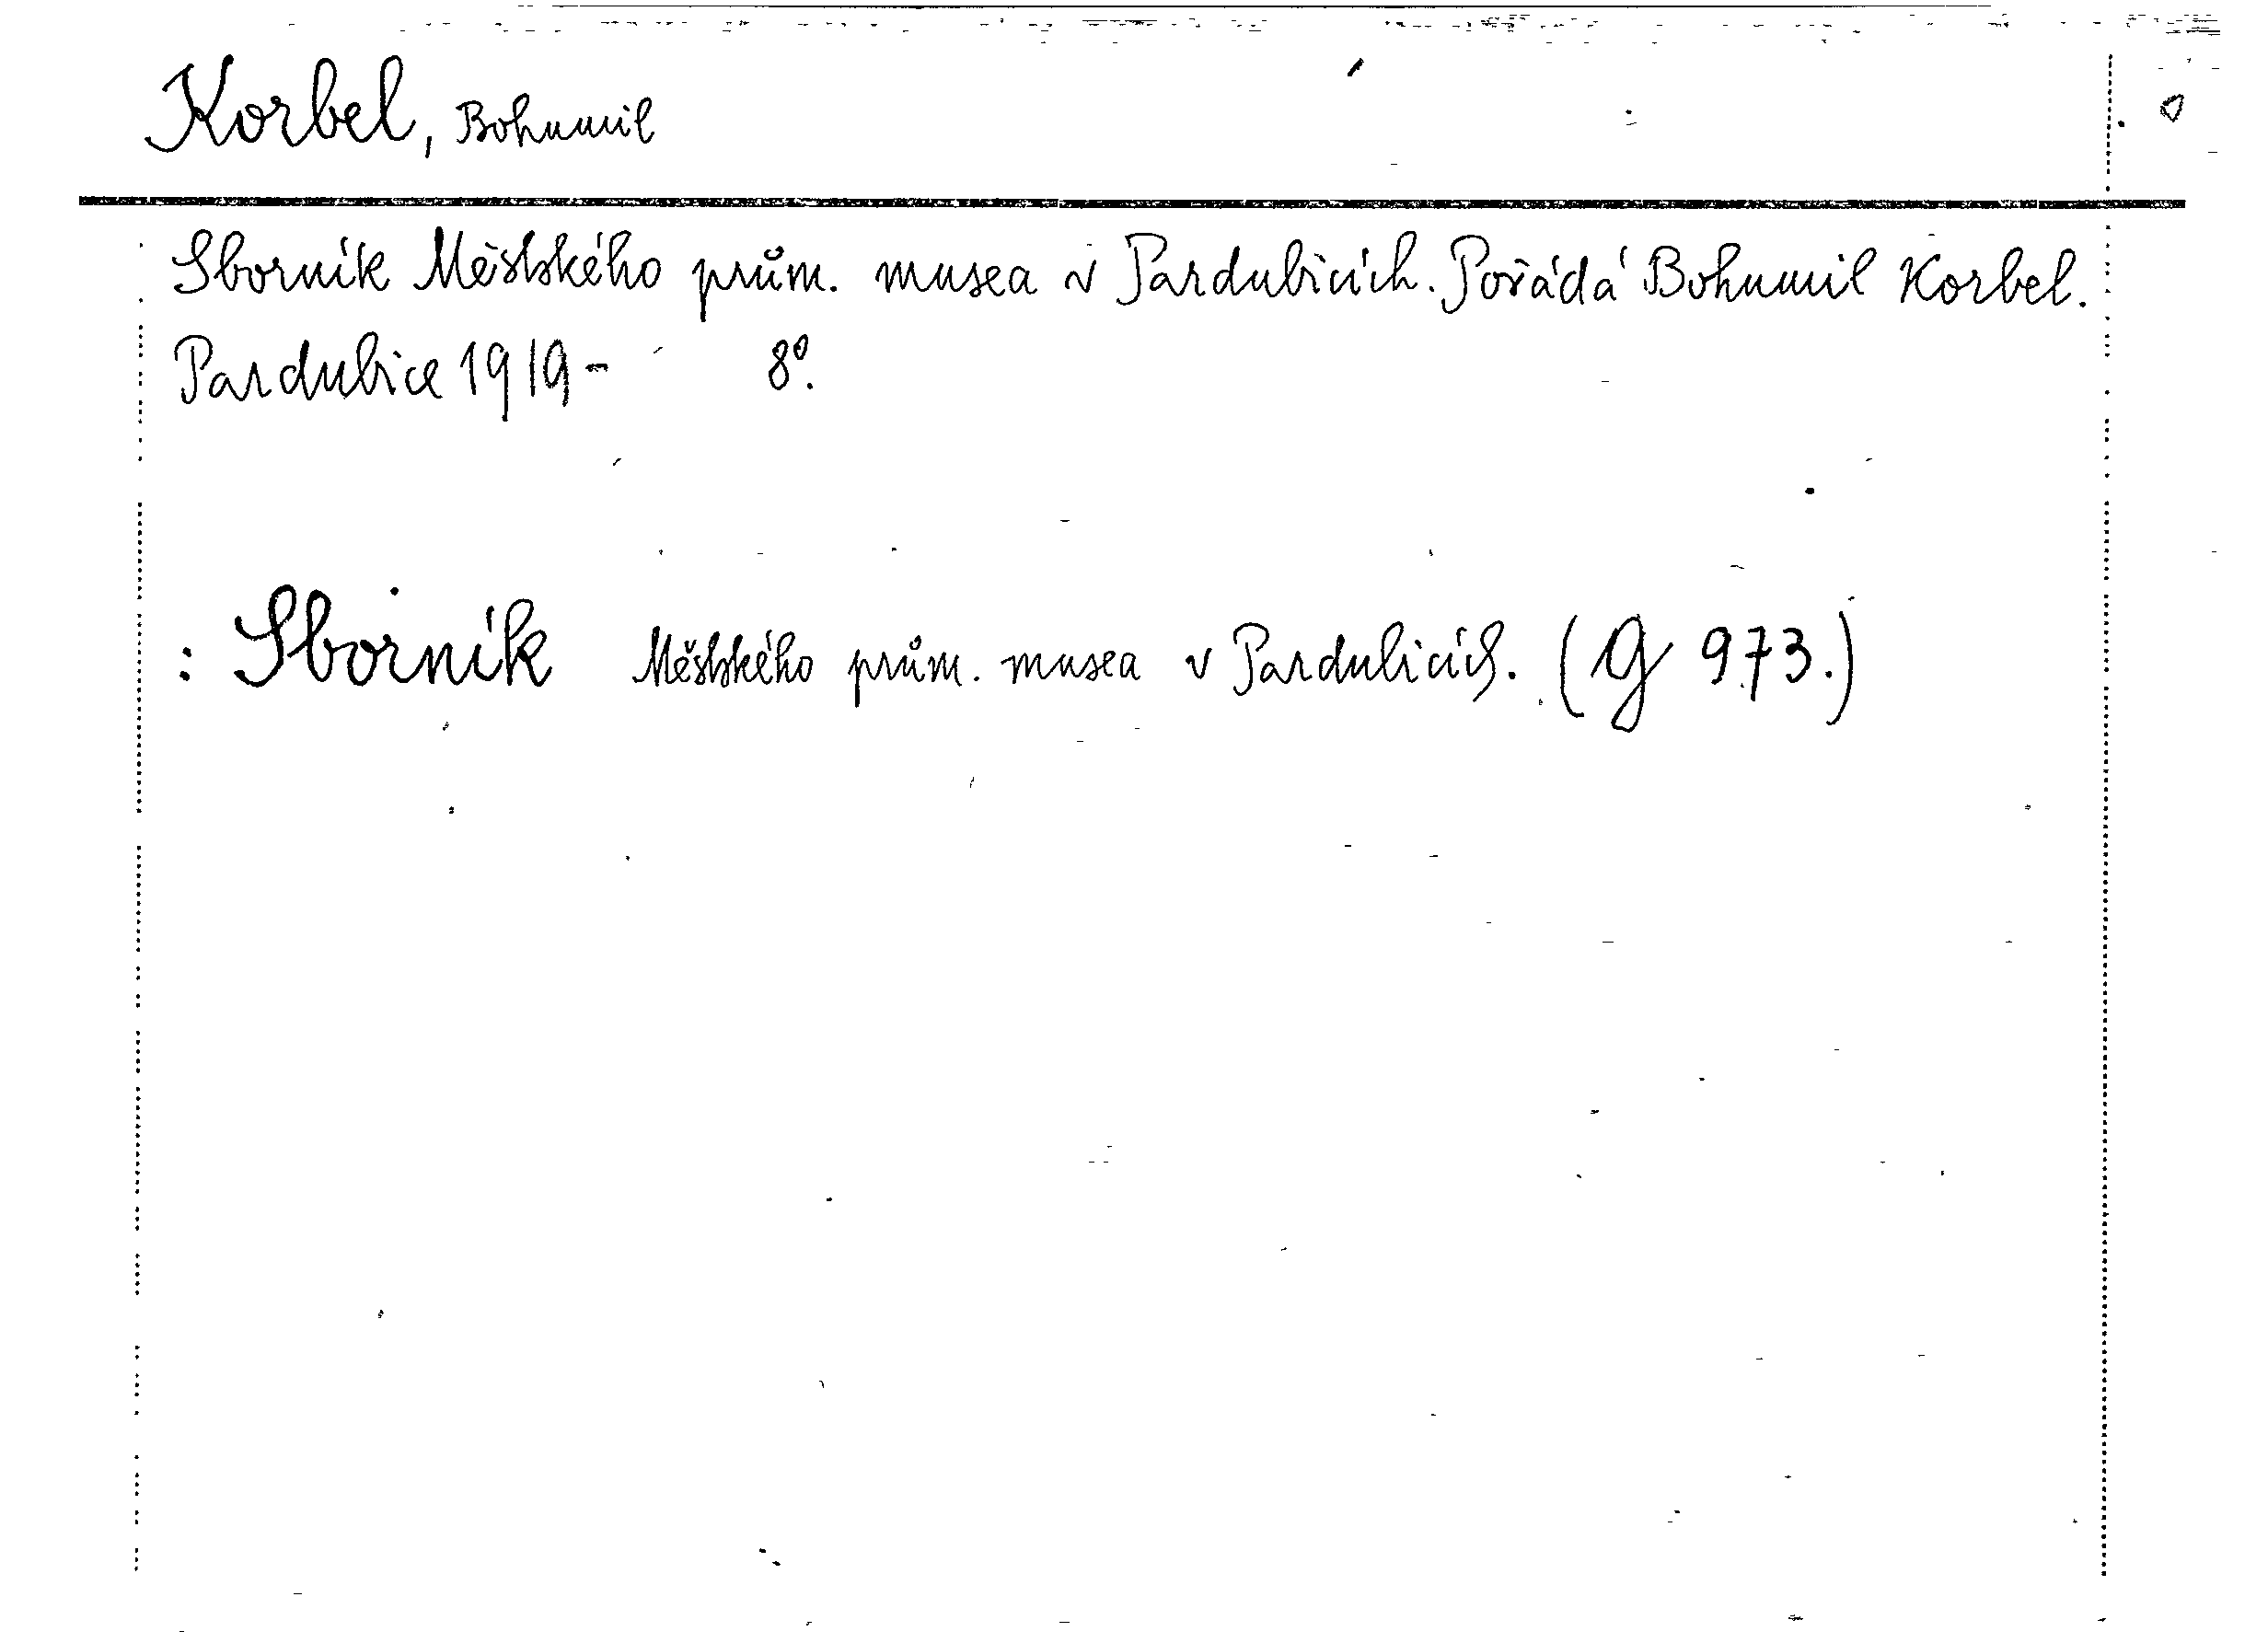 Korbel, Bohumil
Sborník Městského prům. musea v Pardubicích. Pořádá Bohumil Korbel.
Pardubice 1919- 8º.
: Sborník Městského prům. musea v Pardubicích. (G 973.)